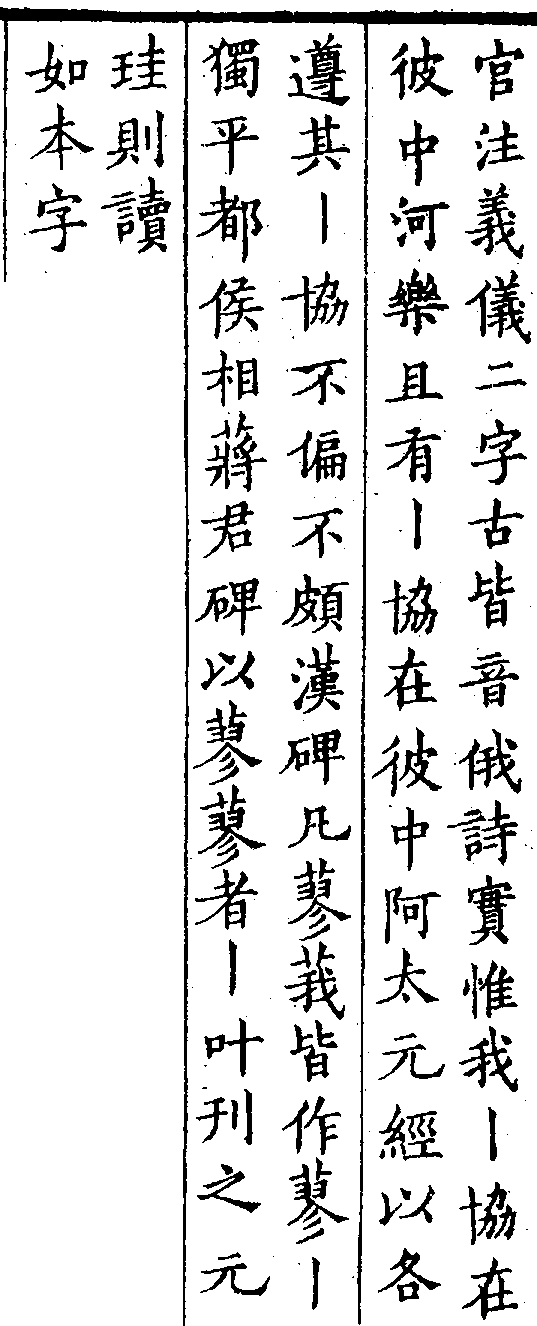 官注義儀二字古皆音俄詩實惟我丨協在
彼中河樂且有丨協在彼中阿太元經以各
遵其丨協不偏不頗漢碑凡蓼莪皆作蓼丨
獨平都侯相蔣君碑以蓼蓼者丨叶刊之元
珪則讀
如本字